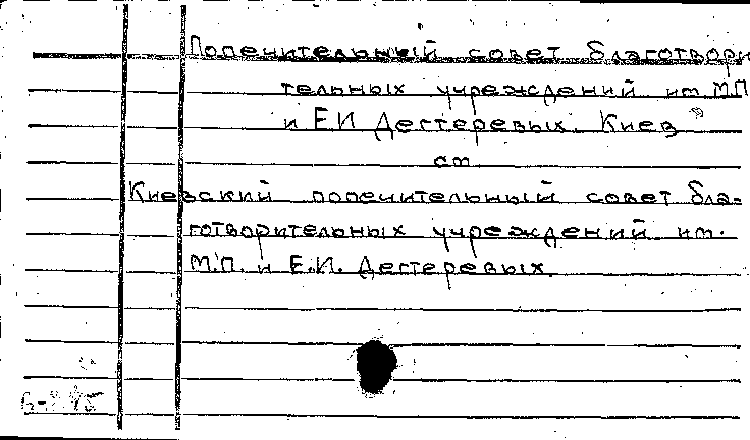 Попечительный совет благотвори
тельных учреждений им. М.П
и Е.И Дегтеревых. Киев
см
Киевский попечительный совет бла-
готворительных учреждений им.
М.П. и Е.И. Дегтеревых.